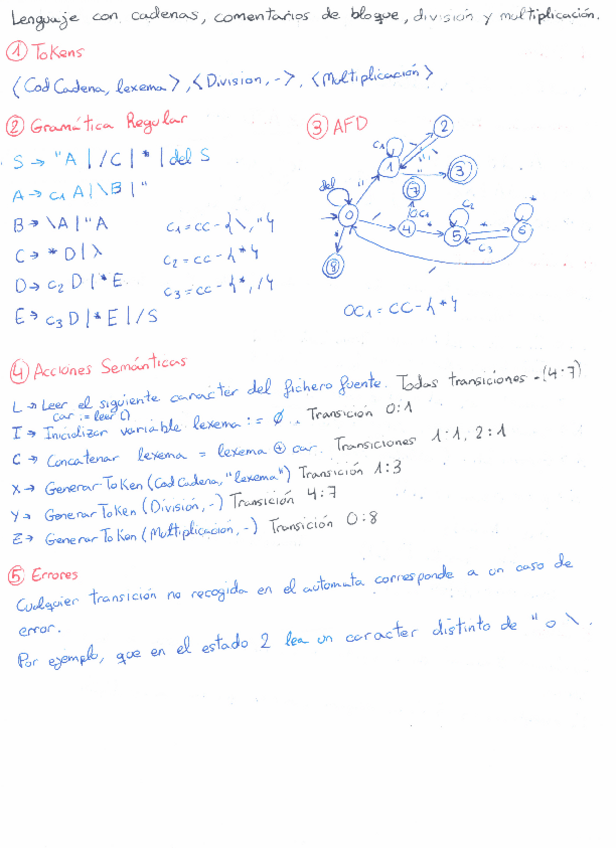 Lenguaje con cadenas, comentarios de bloque, división y multiplicación.
① Tokens
⟨CodCadena, lexema⟩, ⟨Division, -⟩, ⟨Multiplicación⟩
② Gramática Regular
S → "A | /C | * | del S
A → c₁ A | \B | "
B → \A | "A
C → * D | λ
D → c₂ D | * E
E → c₃ D | * E | / S
c₁ = cc - {\, "}
c₂ = cc - {*}
c₃ = cc - {*, /}
③ AFD
del
"
/
*
c₁
\
", \
"
OC₁
*
c₂
*
c₃
*
/
0
1
2
3
4
5
6
7
8
OC₁ = CC - {*}
④ Acciones Semánticas
L → Leer el siguiente carácter del fichero fuente. Todas transiciones - (4·7)
car := leer()
I → Inicializar variable lexema := ∅. Transición 0:1
C → Concatenar lexema = lexema ⊕ car. Transiciones 1:1, 2:1
X → Generar Token (CodCadena, "lexema") Transición 1:3
Y → Generar Token (División, -) Transición 4:7
Z → Generar Token (Multiplicación, -) Transición 0:8
⑤ Errores
Cualquier transición no recogida en el autómata corresponde a un caso de
error.
Por ejemplo, que en el estado 2 lea un caracter distinto de " o \.